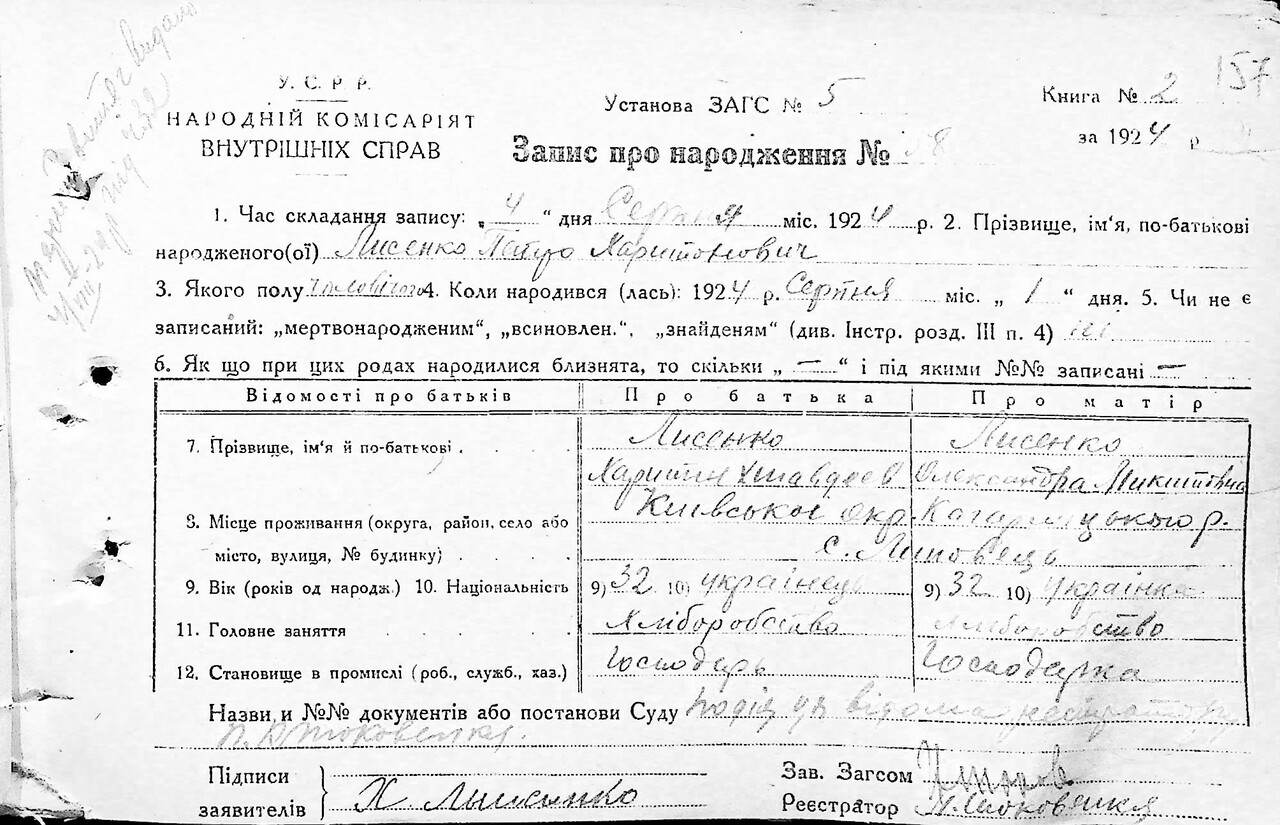 157
У. С. Р. Р.
НАРОДНІЙ КОМІСАРІЯТ
ВНУТРІШНІХ СПРАВ
Установа ЗАГС № 5
Книга № 2
за 1924 р
Запис про народження № 8
1. Час складання запису: „4“ дня Серпня міс. 1924 р. 2. Прізвище, ім'я, по-батькові
народженого(ої) Лисенко Петро Харитонович
3. Якого полу чоловічого 4. Коли народився (лась): 1924 р. Серпня міс. „1“ дня. 5. Чи не є
записаний: „мертвонародженим“, „всиновлен.“, „знайденям“ (див. Інстр. розд. III п. 4) ні
6. Як що при цих родах народилися близнята, то скільки „—“ і під якими №№ записані —
Відомості про батьків Про батька Про матір
7. Прізвище, ім'я й по-батькові Лисенко Лисенко
Харитін Олександра Микитовна
8. Місце проживання (округа, район, село або Київської окр. Кагарлицького р.
місто, вулиця, № будинку) с. Липовець
9. Вік (років од народж.) 10. Національність 9) 32 10) українець 9) 32 10) українка
11. Головне заняття Хліборобство Хліборобство
12. Становище в промислі (роб., служб., хаз.) Господарь Господарка
Назви и №№ документів або постанови Суду відома
Підписи
заявителів Х Лисенко
Зав. Загсом
Реєстратор